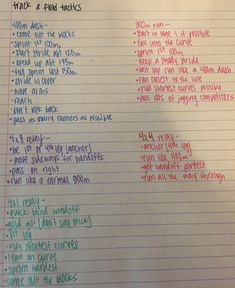 track & field tactics
400m dash-
• come out the blocks
• sprint 1st 100m
• start stride at 125m
• speed up at 175m
• full sprint last 150m
• stride in curve
• move arms
• reach
• don't look back
• pass as many runners as possible
800m run-
• start in lane 1 if possible
• run into the curve
• sprint 1st 100m
• keep a steady stride
• last lap run like a 400m dash
• run closest to the line
• run shortest curves possible
• pass lots of jogging competitors
4x8 relay-
• be 1st or 4th leg (anchor)
• move sideways for handoffs
• pass on right
• run like a normal 800m
4x4 relay-
• anchor (4th leg)
• run like 400m
• get handoff perfect
• run all the way through
4x1 relay-
• quick blind handoff
• told go! (don't say stick)
• 1st leg
• run shortest curves
• lean on curve
• sprint hardest
• come out the blocks